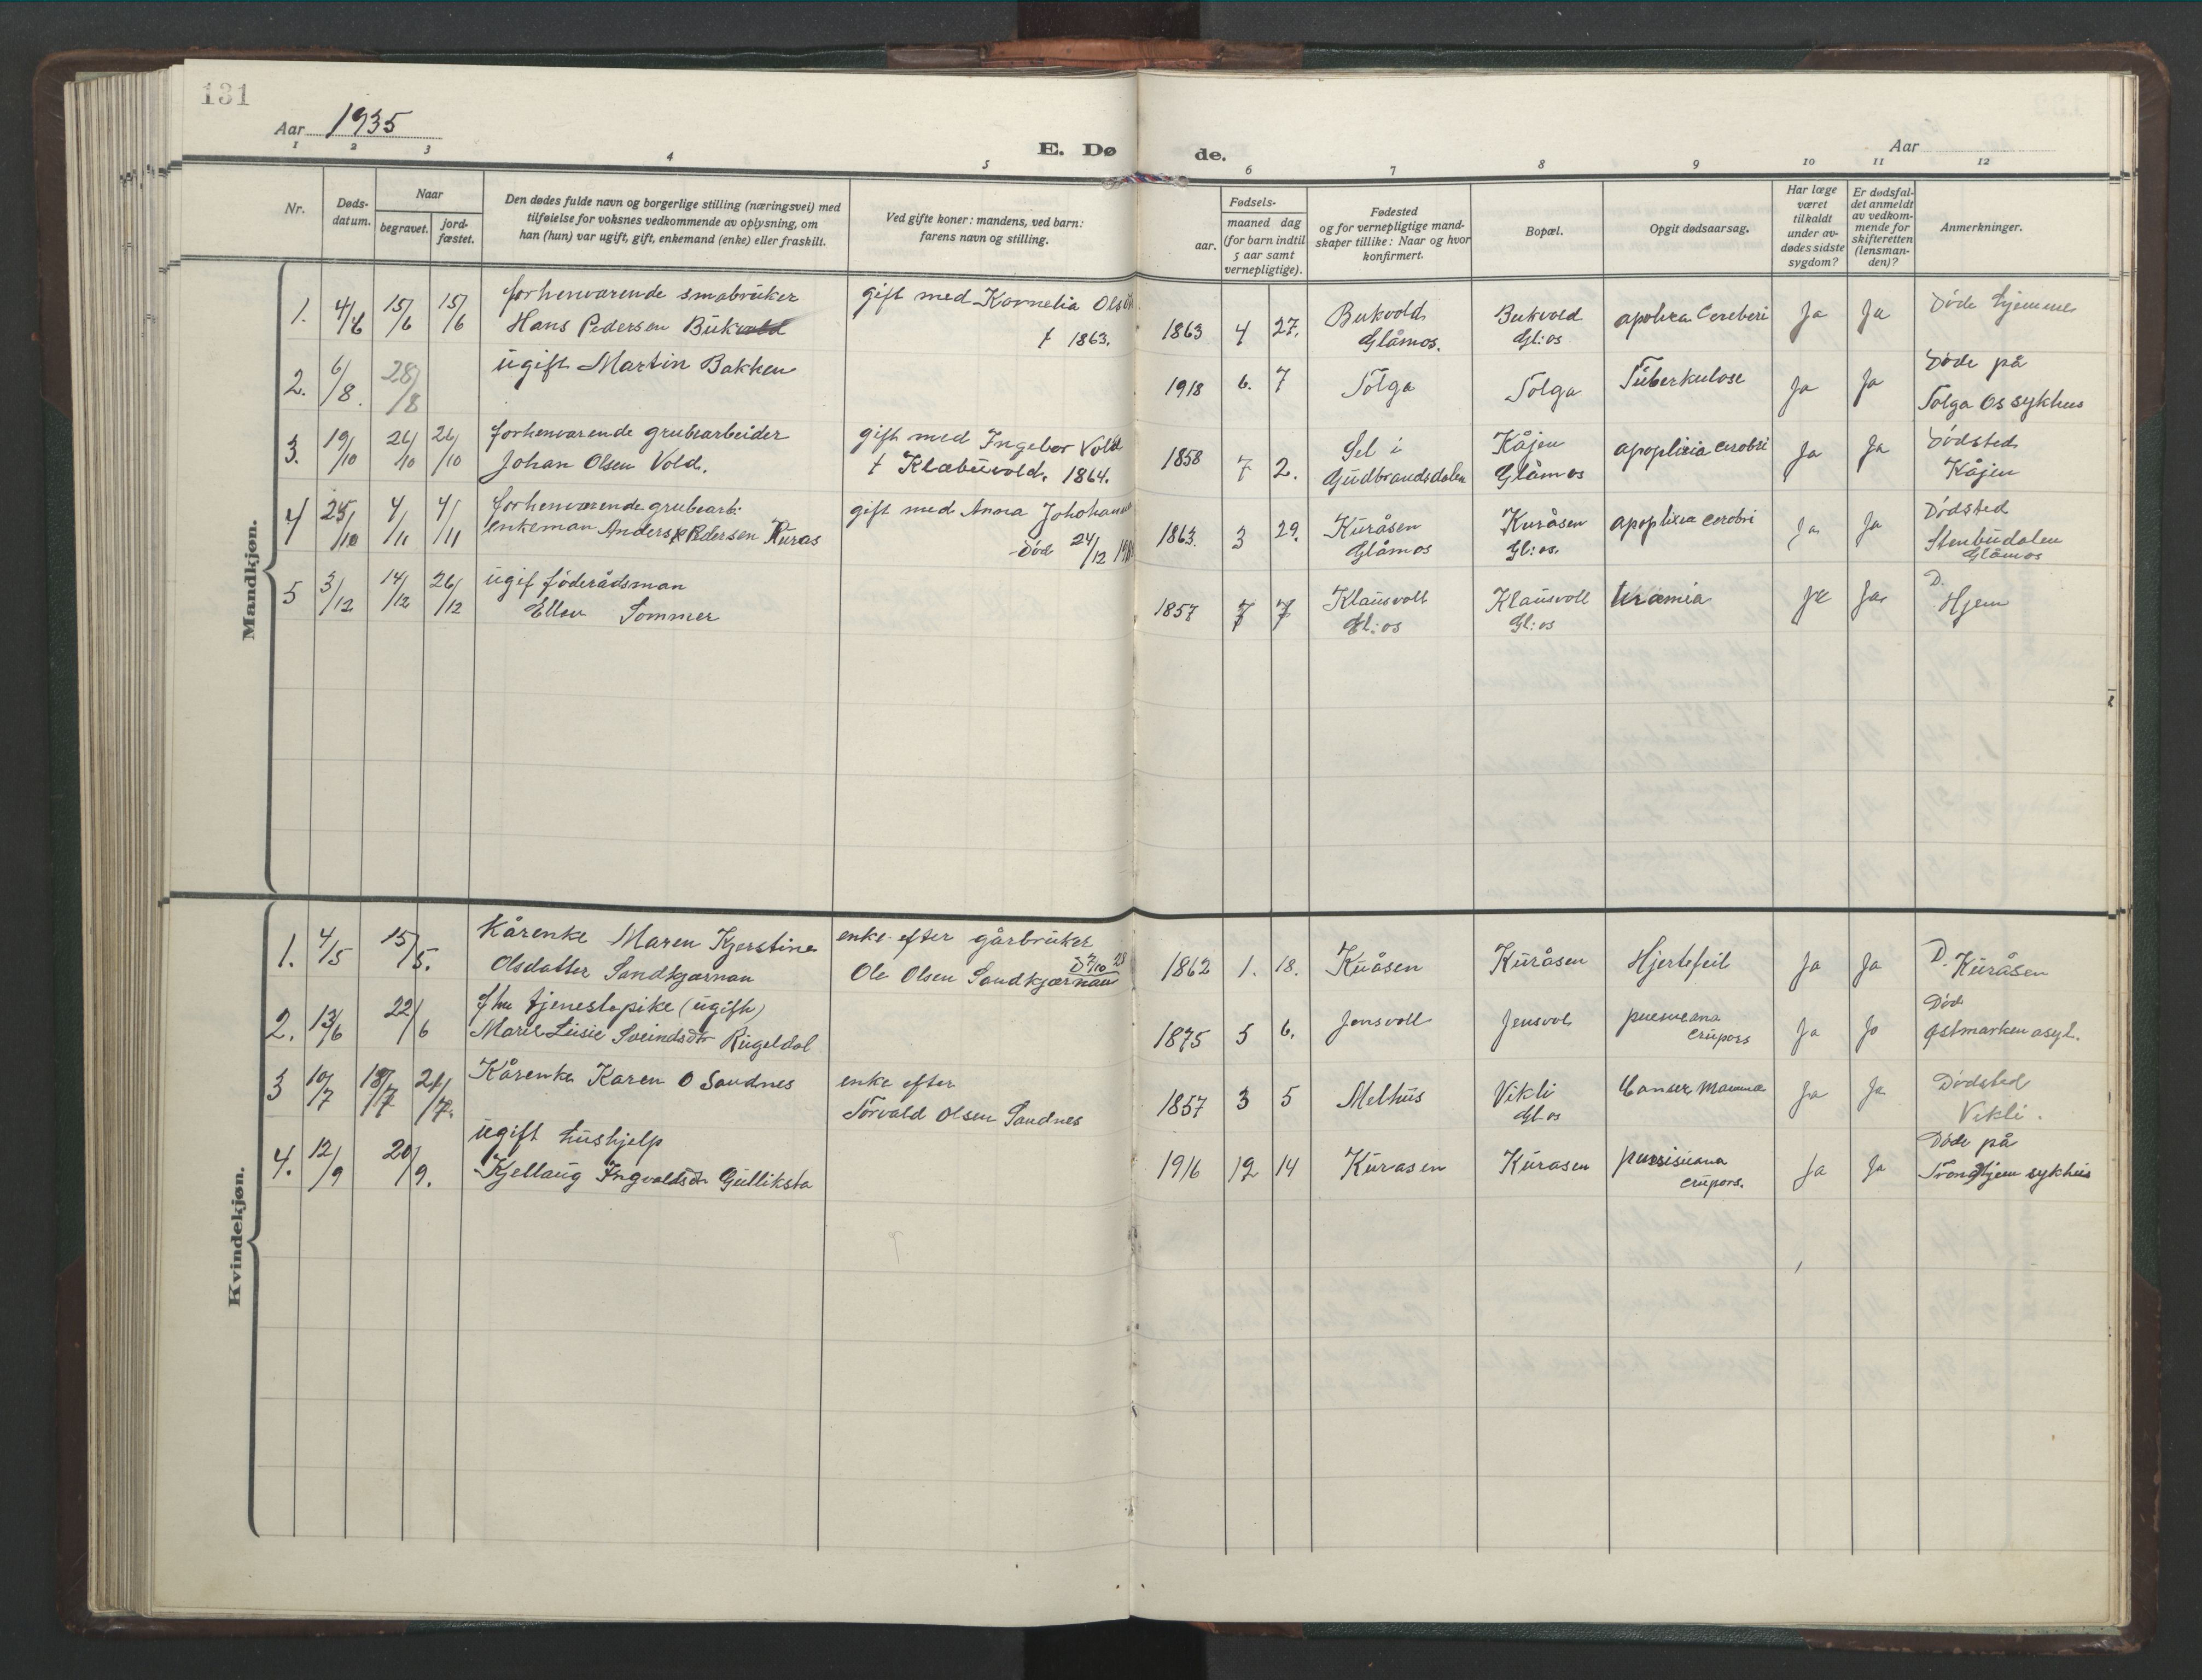 131
Aar 1935
E. Dø de.
Aar
1 2 3 4 5 6 7 8 9 10 11 12
Nr.
Døds-
datum.
Naar
begravet.
jord-
fæstet.
Den dødes fulde navn og borgerlige stilling (næringsvei) med
tilføielse for voksnes vedkommende av oplysning, om
han (hun) var ugift, gift, enkemand (enke) eller fraskilt.
Ved gifte koner: mandens, ved barn:
farens navn og stilling.
Fødsels-
aar.
maaned dag
(for barn indtil
5 aar samt
vernepligtige).
Fødested
og for vernepligtige mand-
skaper tillike: Naar og hvor
konfirmert.
Bopæl.
Opgit dødsaarsag.
Har læge
været
tilkaldt
under av-
dødes sidste
sygdom?
Er dødsfal-
det anmeldt
av vedkom-
mende for
skifteretten
(lensman-
den)?
Anmerkninger.
Mandkjøn.
1. 4/6 15/6 15/6 forhenværende småbrüker gift med Kornelia
Hans Pedersen Bükvold f 1863. 1863 4 27. Bukvold Glåmos. Bukvold Gl:os apolexa Cereberi Ja Ja Døde hjemme
2. 6/8. 28/8 ügift Martin Bakken 1918 6. 7 Tolga Tolga Tüberkulose Ja Ja Døde på
Tolga Os sykhus
3. 19/10 26/10 26/10 forhenværende grubearbeider gift med Ingebor Vold
Johan Olsen Vold. f Klæbüvold. 1864. 1858 7 2. Sel i Güdbrandsdalen Kåjen Glåmos apoplixia cerobri Ja Ja Dødsted
Kåjen
4 25/10 4/11 4/11 forhenværende grubearb: gift med Anna
enkeman Anders Pedersen Küras Død 24/12 1863. 3 29. Küråsen Glåmos Kuråsen Gl:os. apoplixia cerobri Ja Ja Dødsted
Stenbüdalen
Glåmos
5 3/12 14/12 26/12 ügif føderådsman
Ellen Sommer 1857 7 7 Klaüsvoll Gl:os Klaüsvoll Gl:os Uræmia Ja Ja D.
Hjem
Kvindekjøn.
1. 4/5 15/5. Kårenke Maren Kjerstine enke efter gårbrüker
Olsdatter Sandkjærnan Ole Olsen Sandkjærnan D 7/10 28 1862 1. 18. Küåsen Küråsen Hjertefeil Ja Ja D. Küråsen
2. 13/6 22/6 fhv tjenestepike (ügift)
Marel Lüsie Sveindsdtr Rügeldal 1875 5 6. Jensvoll Jensvol crüpors Ja Ja Død
Østmarken asyl.
3 10/7 18/7 21/7. Kårenke Karen O Sandnes enke efter
Torvald Olsen Sandnes 1857 3 5 Melhüs Vikli Gl.os Canser Mamma Ja Ja Dødsted
Vikli.
4. 12/9 20/9. ügift hüshjelp
Kjellaüg Ingvaldsdtr Gülliksta 1916 12 14 Kürasen Kürasen crüpors. Ja Ja Døde på
Trondhjem sykhüs